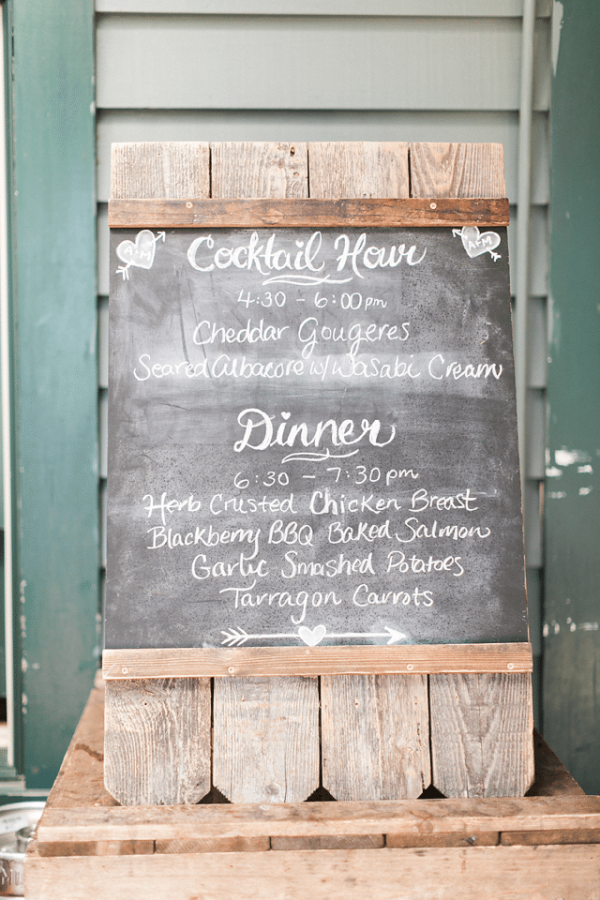 A+M
A+M
Cocktail Hour
4:30 - 6:00pm
Cheddar Gougeres
Seared Albacore w/ Wasabi Cream
Dinner
6:30 - 7:30pm
Herb Crusted Chicken Breast
Blackberry BBQ Baked Salmon
Garlic Smashed Potatoes
Tarragon Carrots